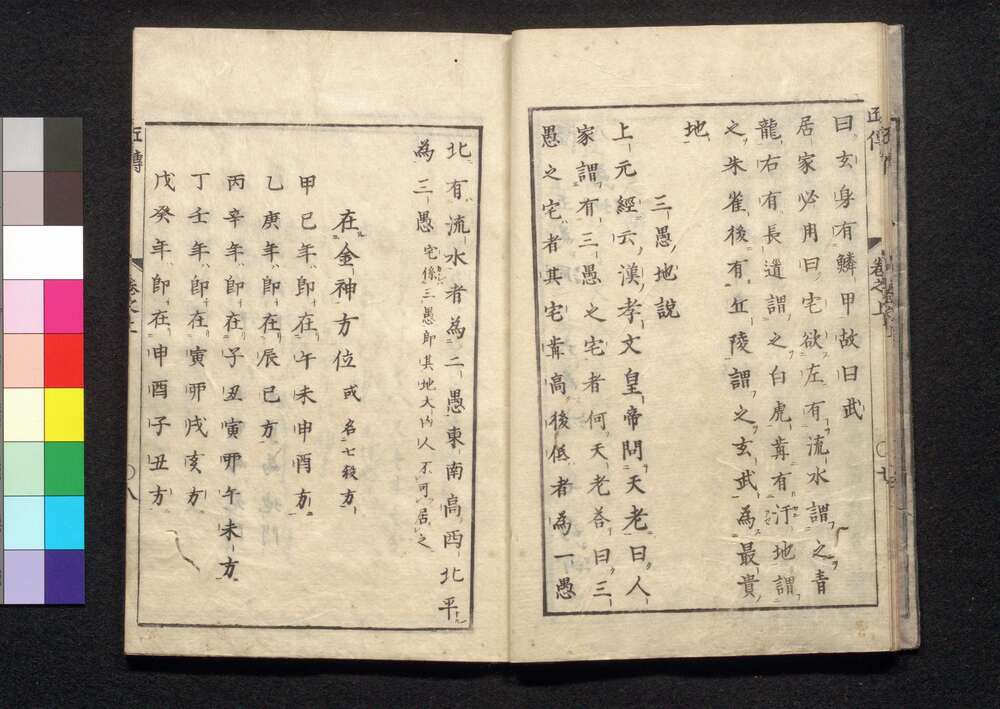 曰玄身有鱗甲故曰武
居家必用曰宅欲左有流水謂之青
龍右有長道謂之白虎前有汙地謂
之朱雀後有丘陵謂之玄武為最貴
地
三愚地説
上元經云漢孝文皇帝問天老曰人
家謂有三愚之宅者何天老荅曰三
愚之宅者其宅前高後低者為一愚
卷之上
〇七
北有流水者為二愚東南高西北平
為三愚宅係三愚即其地大凶人不可居之
在金神方位或名七殺方
甲己年即在午未申酉方
乙庚年即在辰巳方
丙辛年即在子丑寅卯午未方
丁壬年即在寅卯戌亥方
戊癸年即在申酉子丑方
〇八